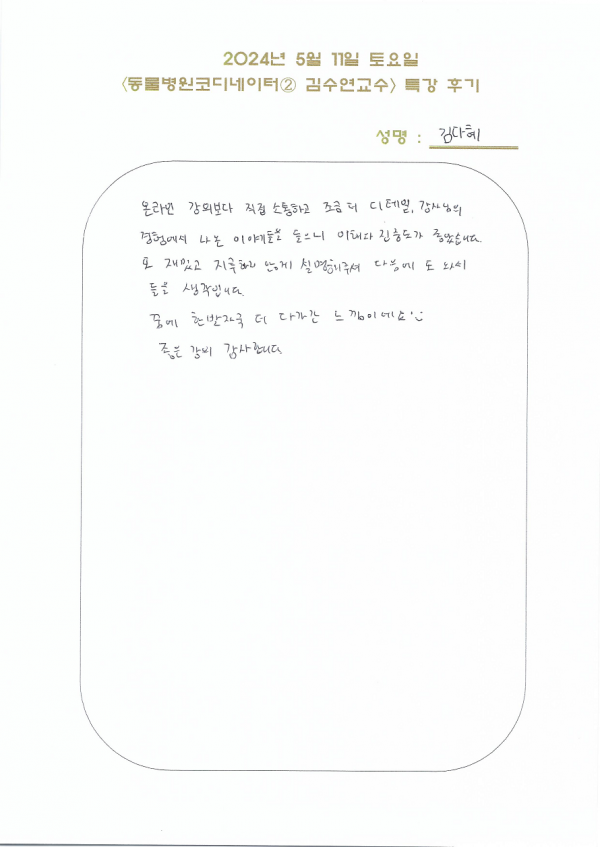 2024년 5월 11일 토요일
<동물병원코디네이터② 김수연교수> 특강 후기
성명 : 김다혜
온라인 강의보다 직접 소통하고 조금 더 디테일, 강사님의
경험에서 나온 이야기들을 들으니 이해다 진중도가 좋았습니다.
또 재밌고 지루하지 않게 설명해주셔 다음에 또 와서
들을 생각입니다.
꿈에 한발자국 더 다가간 느낌이네요
좋은 강의 감사합니다.